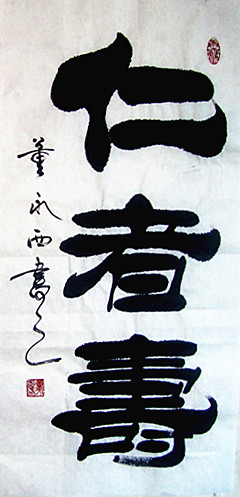 仁者壽
董永西書